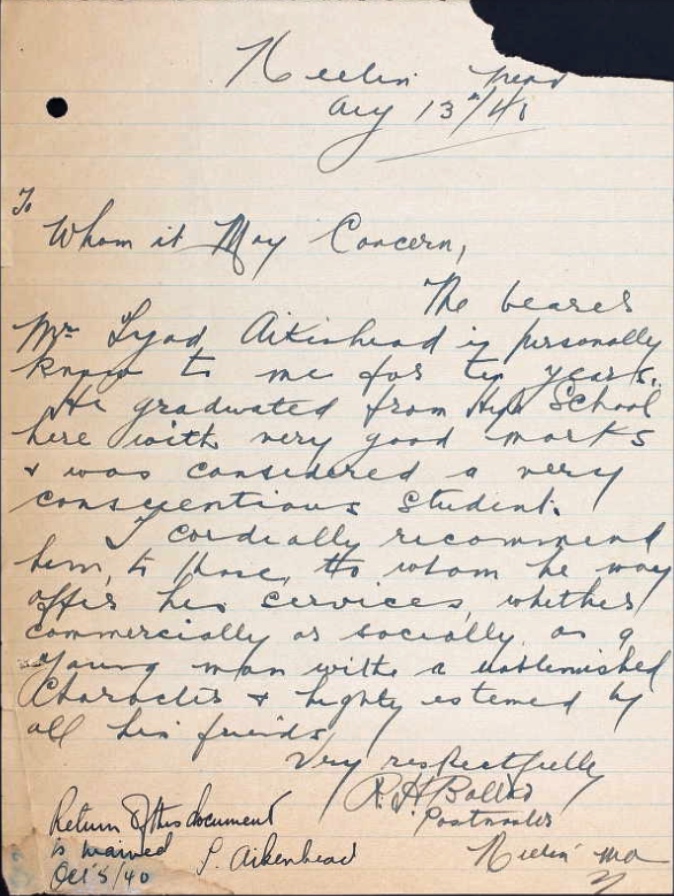 Aug 13th/40
To
Whom it May Concern,
The bearer
Mr Lyod Aikinhead is personally
known to me for ten years.
He graduated from High School
here with very good marks
& was considered a very
conscyentious student.
I cordially recommend
him, to those, to whom he may
offer his services, whether
commercially or socially, as a
young man with a unblemished
Character & highly estemed by
all his friends
Very respectfully
R. H.
Postmaster
Return of this document
is waived L. Aikenhead
Oct 5/40